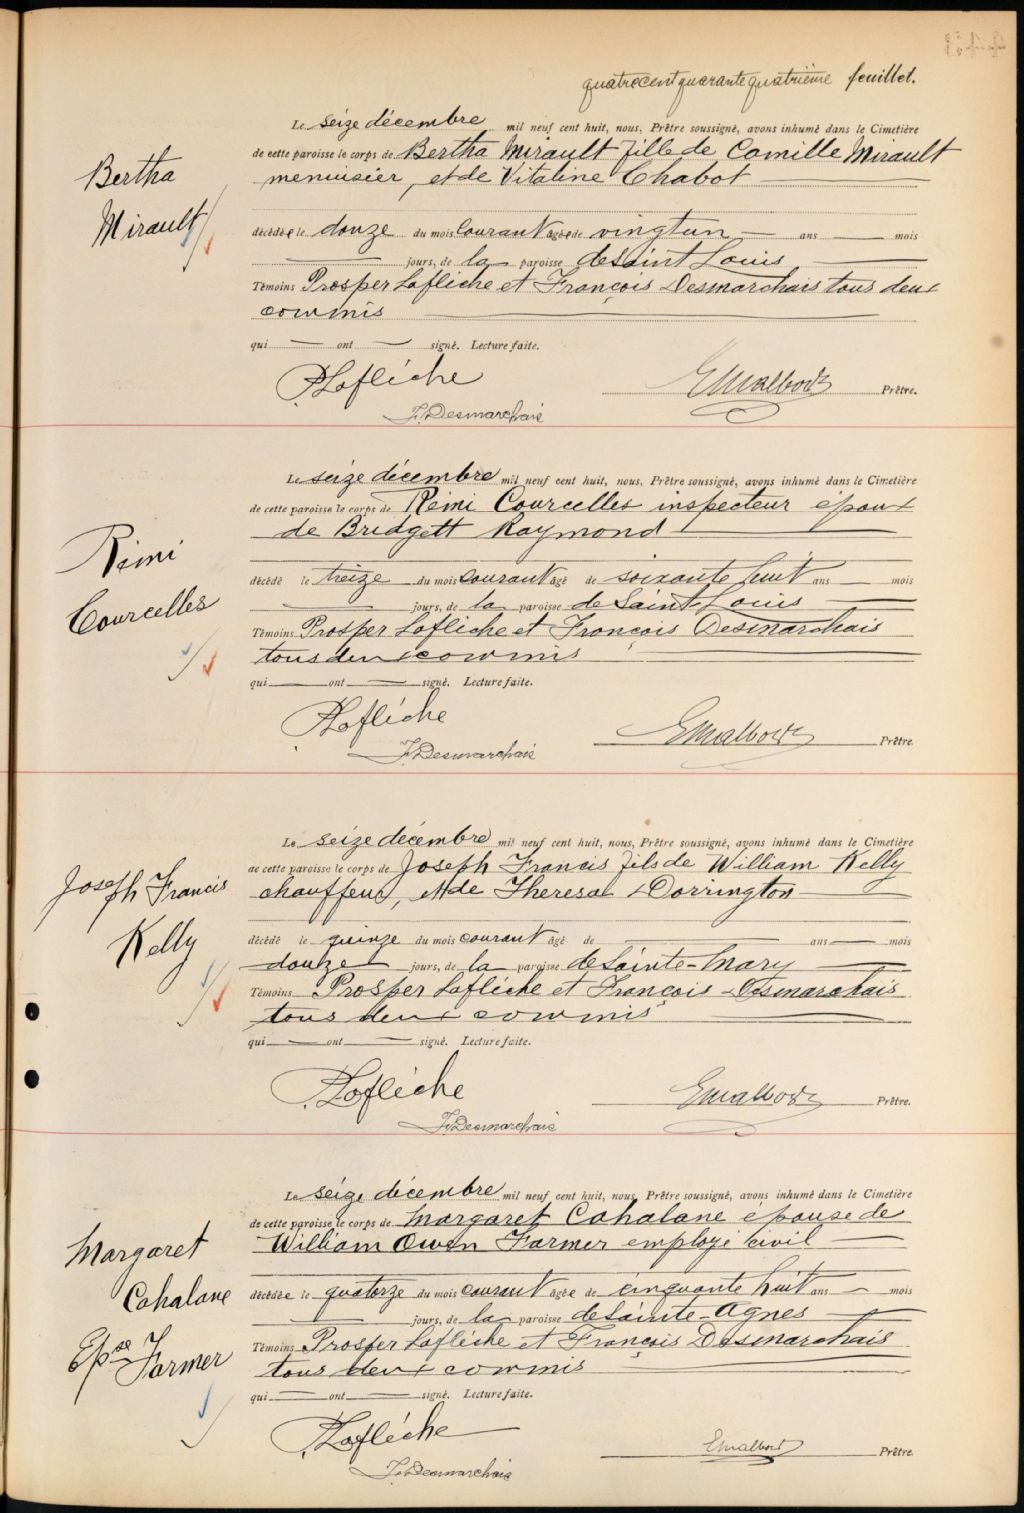 quatrecentquarantequatrième feuillet.
Le seize décembre mil neuf cent huit, nous, Prêtre soussigné, avons inhumé dans le Cimetière
de cette paroisse le corps de Bertha Mirault fille de Camille Mirault
menuisier, et de Vitaline Chabot
Bertha
Mirault
décédée le douze du mois courant agée de vingtun ans mois
jours, de la paroisse de Saint Louis
Témoins Prosper Laflèche et François Desmarchais tous deux
commis
qui ont signé. Lecture faite.
P. Laflèche
F. Desmarchais
Prêtre.
Le seize décembre mil neuf cent huit, nous, Prêtre soussigné, avons inhumé dans le Cimetière
de cette paroisse le corps de Rémi Courcelles inspecteur époux
de Bridgett Raymond
Rémi
Courcelles
décédé le treize du mois courant âgé de soixante huit ans mois
jours, de la paroisse de Saint-Louis
Témoins Prosper Laflèche et François Desmarchais
tous deux commis
qui ont signé. Lecture faite.
P. Laflèche
F. Desmarchais
Prêtre.
Le seize décembre mil neuf cent huit, nous, Prêtre soussigné, avons inhumé dans le Cimetière
de cette paroisse le corps de Joseph Francis fils de William Kelly
chauffeur, et de Theresa Dorrington
Joseph Francis
Kelly
décédé le quinze du mois courant âgé de ans mois
douze jours, de la paroisse de Sainte-Mary
Témoins Prosper Laflèche et François Desmarchais
tous deux commis
qui ont signé. Lecture faite.
P. Laflèche
F. Desmarchais
Prêtre.
Le seize décembre mil neuf cent huit, nous, Prêtre soussigné, avons inhumé dans le Cimetière
de cette paroisse le corps de Margaret Cahalane épouse de
William Owen Farmer employé civil
Margaret
Cahalane
Epse Farmer
décédée le quatorze du mois courant âgée de cinquante huit ans mois
jours, de la paroisse de Sainte-Agnes
Témoins Prosper Laflèche et François Desmarchais
tous deux commis
qui ont signé. Lecture faite.
P. Laflèche
F. Desmarchais
Prêtre.